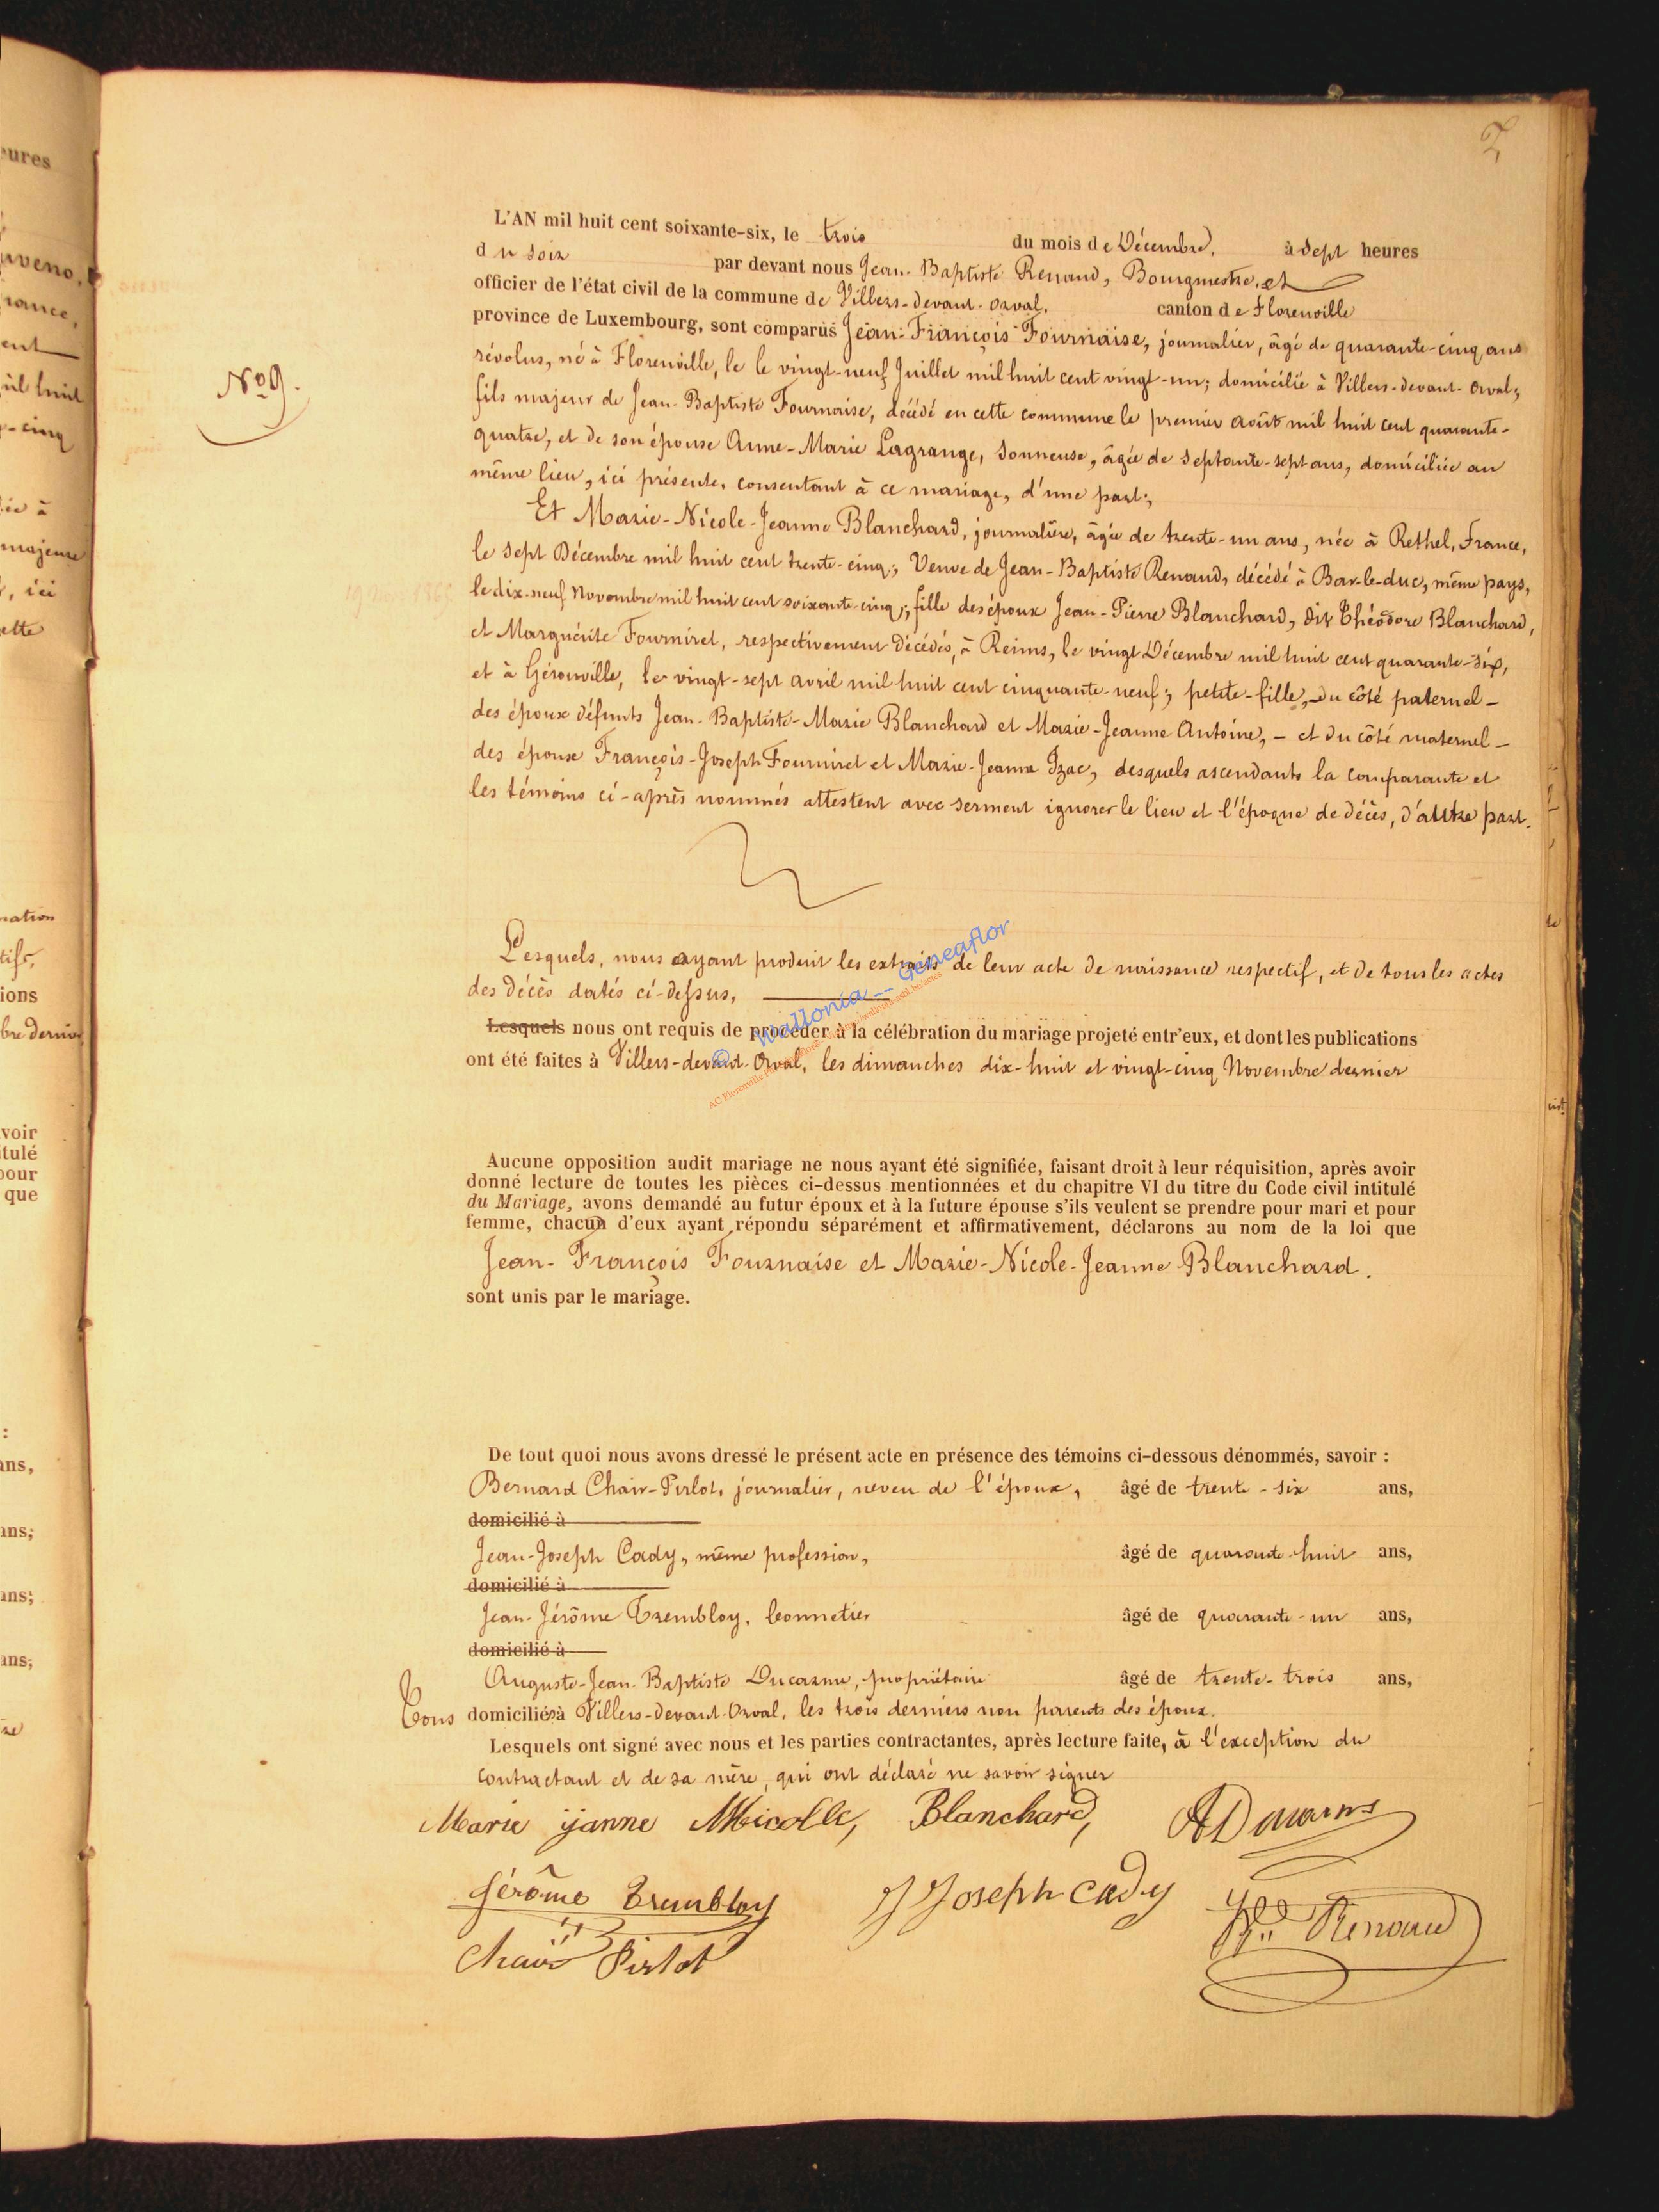 2
L'AN mil huit cent soixante-six, le trois du mois de Décembre, à sept heures
du soir par devant nous Jean-Baptiste Renaud, Bourgmestre, et
officier de l'état civil de la commune de Villers-devant-Orval, canton de Florenville
province de Luxembourg, sont comparus Jean-François Fournaise, journalier, âgé de quarante-cinq ans
révolus, né à Florenville, le le vingt-neuf Juillet mil huit cent vingt-un; domicilié à Villers-devant-Orval;
N° 9.
fils majeur de Jean-Baptiste Fournaise, décédé en cette commune le premier août mil huit cent quarante-
quatre, et de son épouse Anne-Marie Lagrange, Sonneuse, âgée de septante-sept ans, domiciliée au
même lieu, ici présente, consentant à ce mariage, d'une part;
Et Marie-Nicole-Jeanne Blanchard, journalière, âgée de trente-un ans, née à Rethel, France,
le sept Décembre mil huit cent trente-cinq; Veuve de Jean-Baptiste Renaud, décédé à Bar-le-duc, même pays,
le dix-neuf Novembre mil huit cent soixante-cinq; fille des époux Jean-Pierre Blanchard, dit Théodore Blanchard,
et Marguérite Fourniret, respectivement décédés, à Reims, le vingt Décembre mil huit cent quarante-six,
et à Gérouville, le vingt-sept avril mil huit cent cinquante-neuf; petite-fille, du côté paternel -
des époux défunts Jean-Baptiste-Marie Blanchard et Marie-Jeanne Antoine, - et du côté maternel -
des époux François-Joseph Fourniret et Marie-Jeanne Izac, desquels ascendants la comparante et
les témoins ci-après nommés attestent avec serment ignorer le lieu et l'époque de décès, d'autre part.
Lesquels, nous ayant produit les extraits de leur acte de naissance respectif, et de tous les actes
des décès datés ci-dessus,
Lesquels nous ont requis de procéder à la célébration du mariage projeté entr'eux, et dont les publications
ont été faites à Villers-devant-Orval, les dimanches dix-huit et vingt-cinq Novembre dernier
© Wallonia -- Geneaflor
Aucune opposition audit mariage ne nous ayant été signifiée, faisant droit à leur réquisition, après avoir
donné lecture de toutes les pièces ci-dessus mentionnées et du chapitre VI du titre du Code civil intitulé
du Mariage, avons demandé au futur époux et à la future épouse s'ils veulent se prendre pour mari et pour
femme, chacun d'eux ayant répondu séparément et affirmativement, déclarons au nom de la loi que
Jean-François Fournaise et Marie-Nicole-Jeanne Blanchard.
sont unis par le mariage.
De tout quoi nous avons dressé le présent acte en présence des témoins ci-dessous dénommés, savoir :
Bernard Chair-Pirlot, journalier, neveu de l'époux, âgé de trente-six ans,
domicilié à
Jean-Joseph Cady, même profession, âgé de quarante-huit ans,
domicilié à
Jean-Jérôme Trembloy, bonnetier âgé de quarante-un ans,
domicilié à
Auguste-Jean-Baptiste Ducarme, propriétaire âgé de trente-trois ans,
Tous domiciliés à Villers-devant-Orval, les trois derniers non parents des époux.
Lesquels ont signé avec nous et les parties contractantes, après lecture faite, à l'exception du
contractant et de sa mère, qui ont déclaré ne savoir signer
Marie janne Nicolle, Blanchard, ADucarme
Jérôme Trembloy J Joseph Cady Renaud
Chair Pirlot